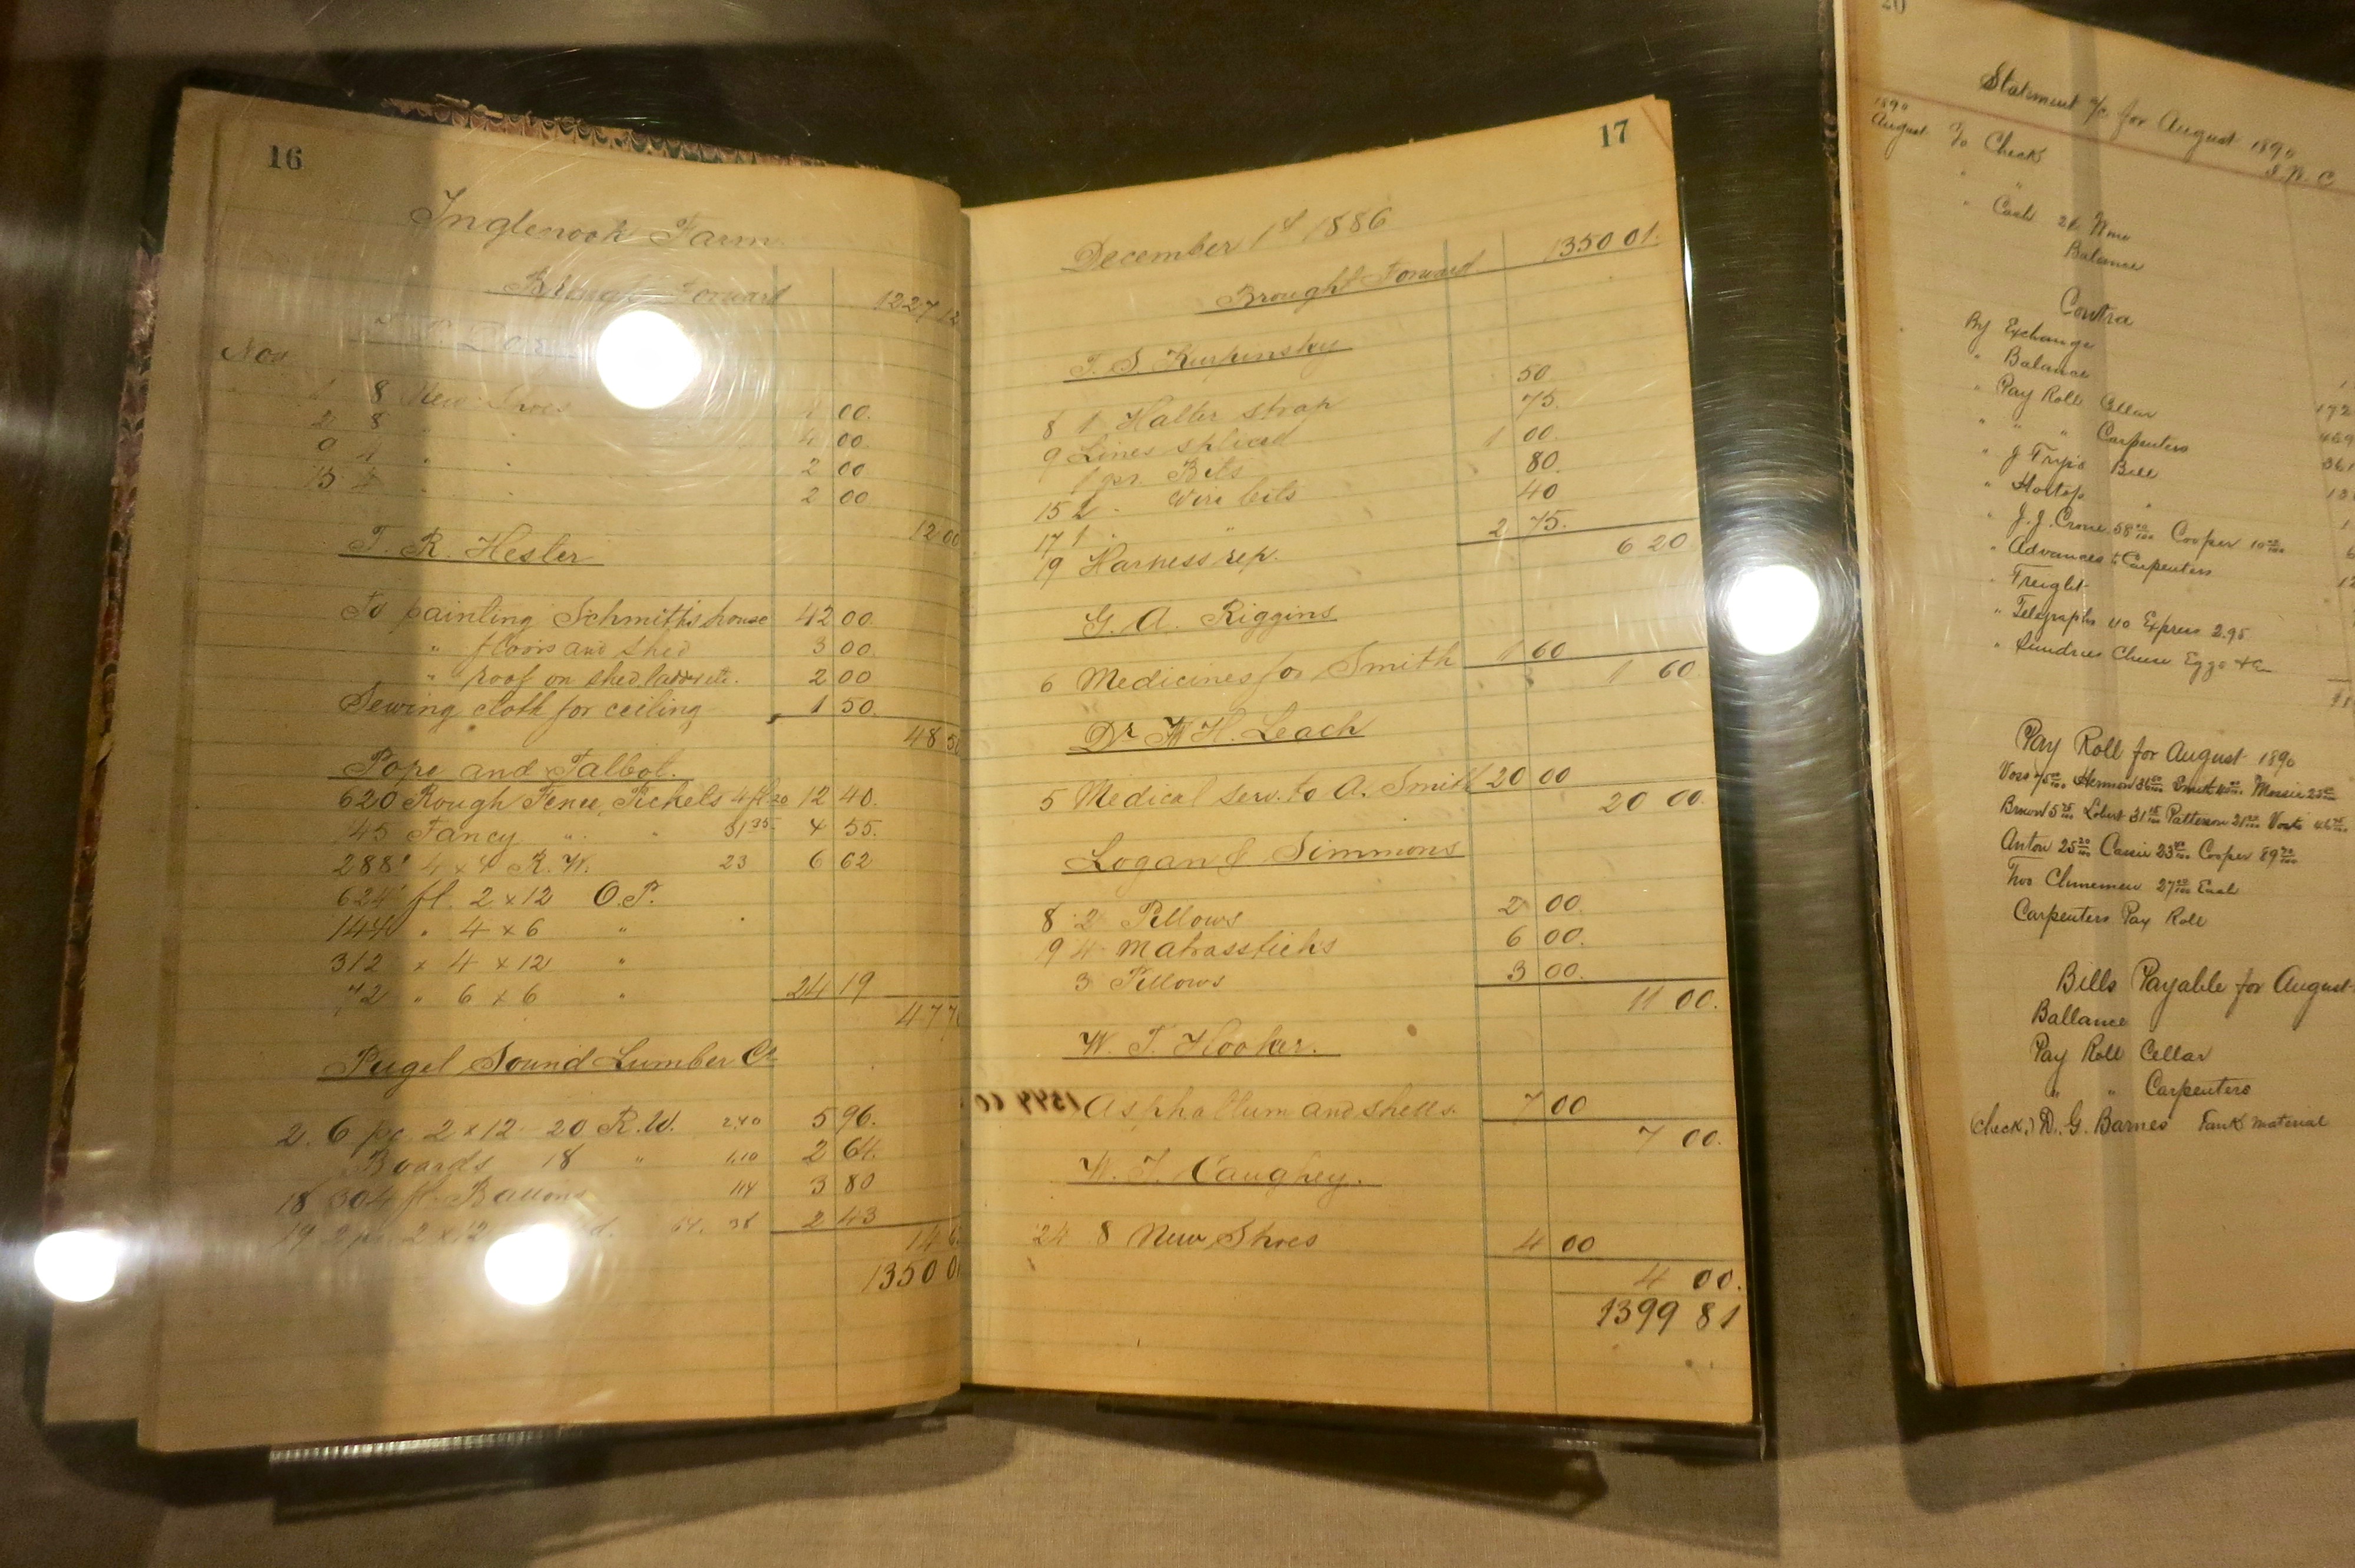 16
Inglenook Farm
Brought Forward 1227 12
Nov
1 8 New Shoes 4 00.
2 8 " " 4 00.
9 4 " " 2 00
15 " " 2 00
12 00
T. R. Hester
To painting Schmith's house 42 00.
" floors and shed 3 00.
" roof on shed 2 00
Sewing cloth for ceiling 1 50.
48 50
Pope and Talbot.
620 Rough Fence Pickets 4 ft 20 12 40.
145 Fancy " " 31 35 4 55.
288' 4 x 4 R. W. 23 6 62
624' ft. 2 x 12 O.P.
144 " 4 x 6 "
312 " 4 x 12 "
72 " 6 x 6 " 24 19
47 7
Puget Sound Lumber Co
2. 6 pc 2 x 12 20 R.W. 240 5 96.
Boards 18 " 110 2 64.
18 304 ft. Battens 114 3 80
19 2 2 x 12 64. 38 2 43
14
1350 0
17
December 1st 1886
Brought Forward 1350 01.
8 1 Halter strap 50
9 Lines spliced 75.
1 pr. Bits 1 00.
15 2 " Wire bits 80.
17 1 " " 40
19 Harness rep. 2 75.
6 20
G. A. Riggins
6 Medicines for Smith 1 60
1 60
Dr W. H. Leach
5 Medical serv. to A. Smith 20 00
20 00.
Logan & Simmons
8 2 Pillows 2 00.
9 4 Matrassticks 6 00.
3 Pillows 3 00.
11 00.
W. T. Hooker.
Asphaltum and shells. 7 00
7 00.
W. T. Caughey.
24 8 New Shoes 4 00
4 00.
1399 81
20
Statement a/c for August 1890
1890
August To Check
Balance
Contra
By Exchange
" Balance
" Pay Roll Cellar 172
" " " Carpenters 459
" J Fry's Bill 361
" J. J. Crone 58 Cooper 10
" Advances to Carpenters
" Freight
" Telegraphs Express 2.95
" Sundries Cheese Eggs &c
Pay Roll for August 1890
Voss 75 Herman Smith Messie
Brown Lobert Patterson 21
Anton 25 Cassie 23 Cooper 89
Two Chinemen 27 Each
Carpenters Pay Roll
Bills Payable for August
Ballance
Pay Roll Cellar
" " Carpenters
(Check.) D. G. Barnes Tank Material